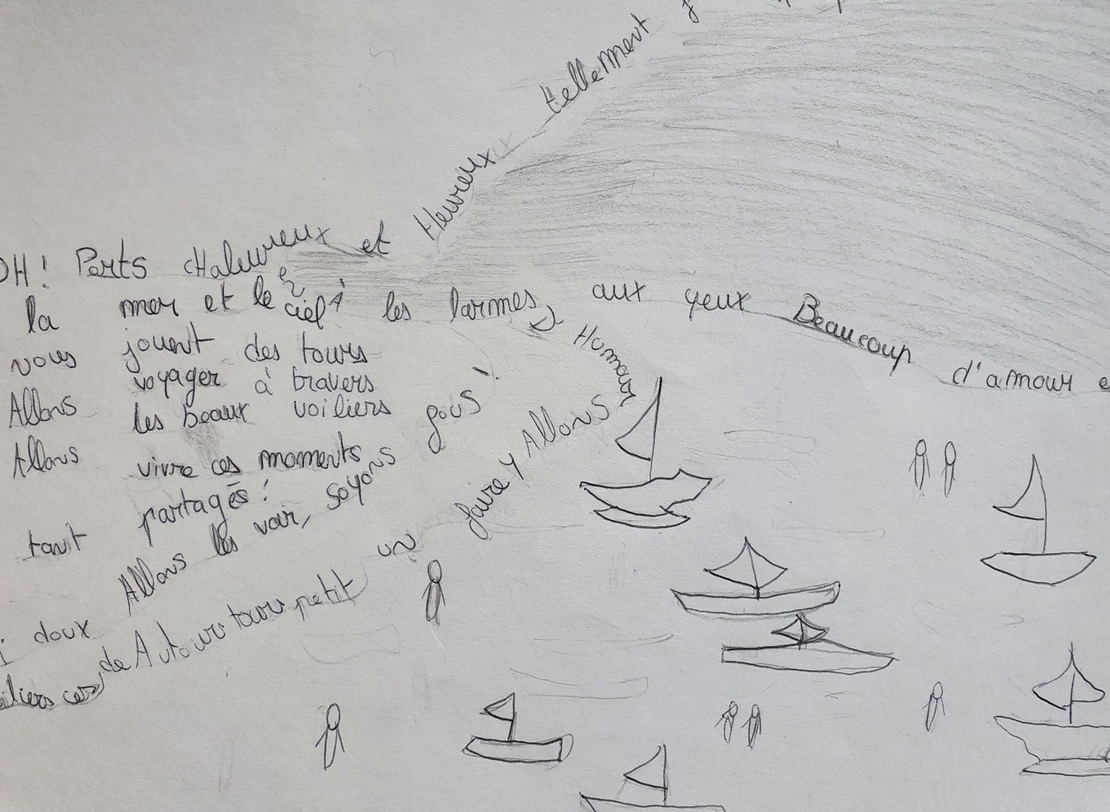 OH! Ports cHaleureux et Heureux tellement
la mer et le ciel les larmes aux yeux Beaucoup d'amour e
nous jouent des tours
Allons voyager à travers
les beaux voiliers
Allons vivre ces moments
tant partagés!
Allons les voir, soyons gais!
i doux
iliers ces de Autour tour petit un faire y Allons Humour